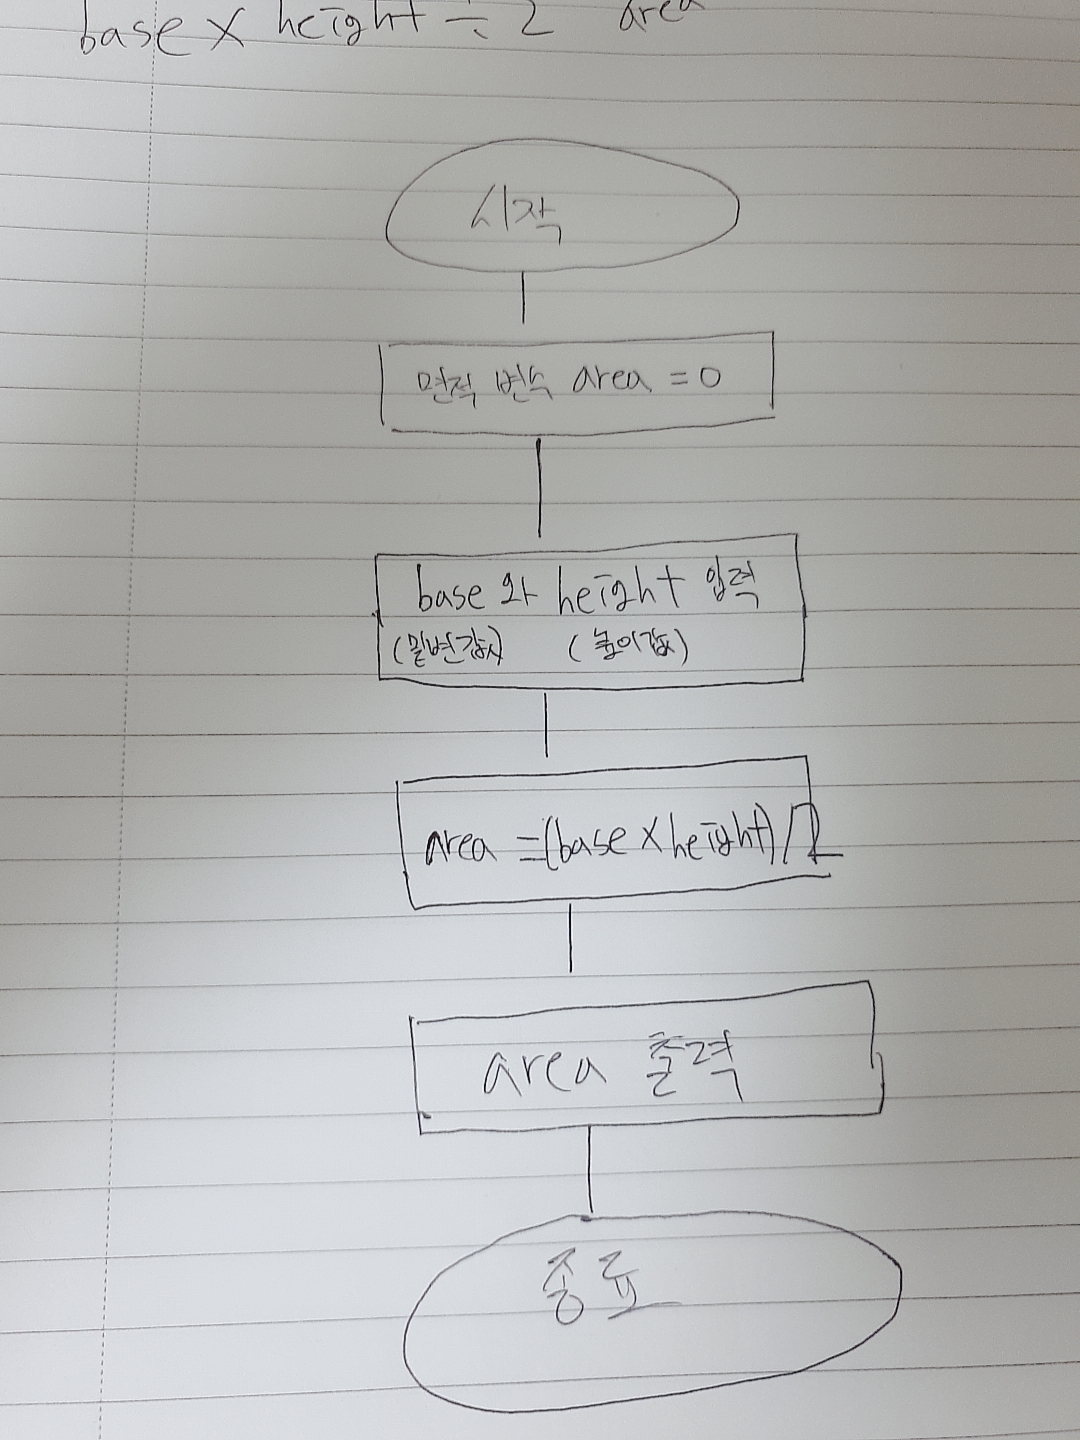 base × height ÷ 2 area
시작
면적 변수 area = 0
base 와 height 입력
(밑변값) (높이값)
area =(base × height)/2
area 출력
종료